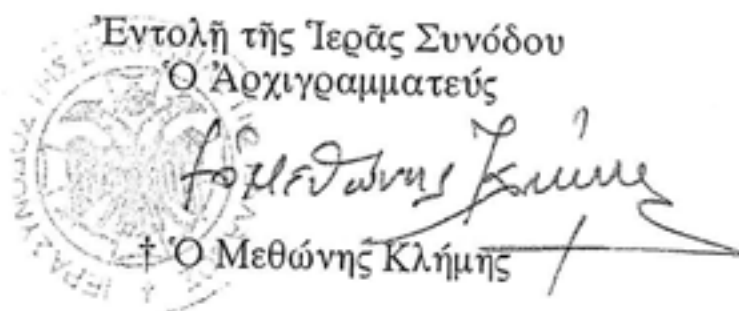 Ἐντολῇ τῆς Ἱερᾶς Συνόδου
Ὁ Ἀρχιγραμματεύς
† ὁ Μεθώνης Κλήμης
† Ὁ Μεθώνης Κλήμης